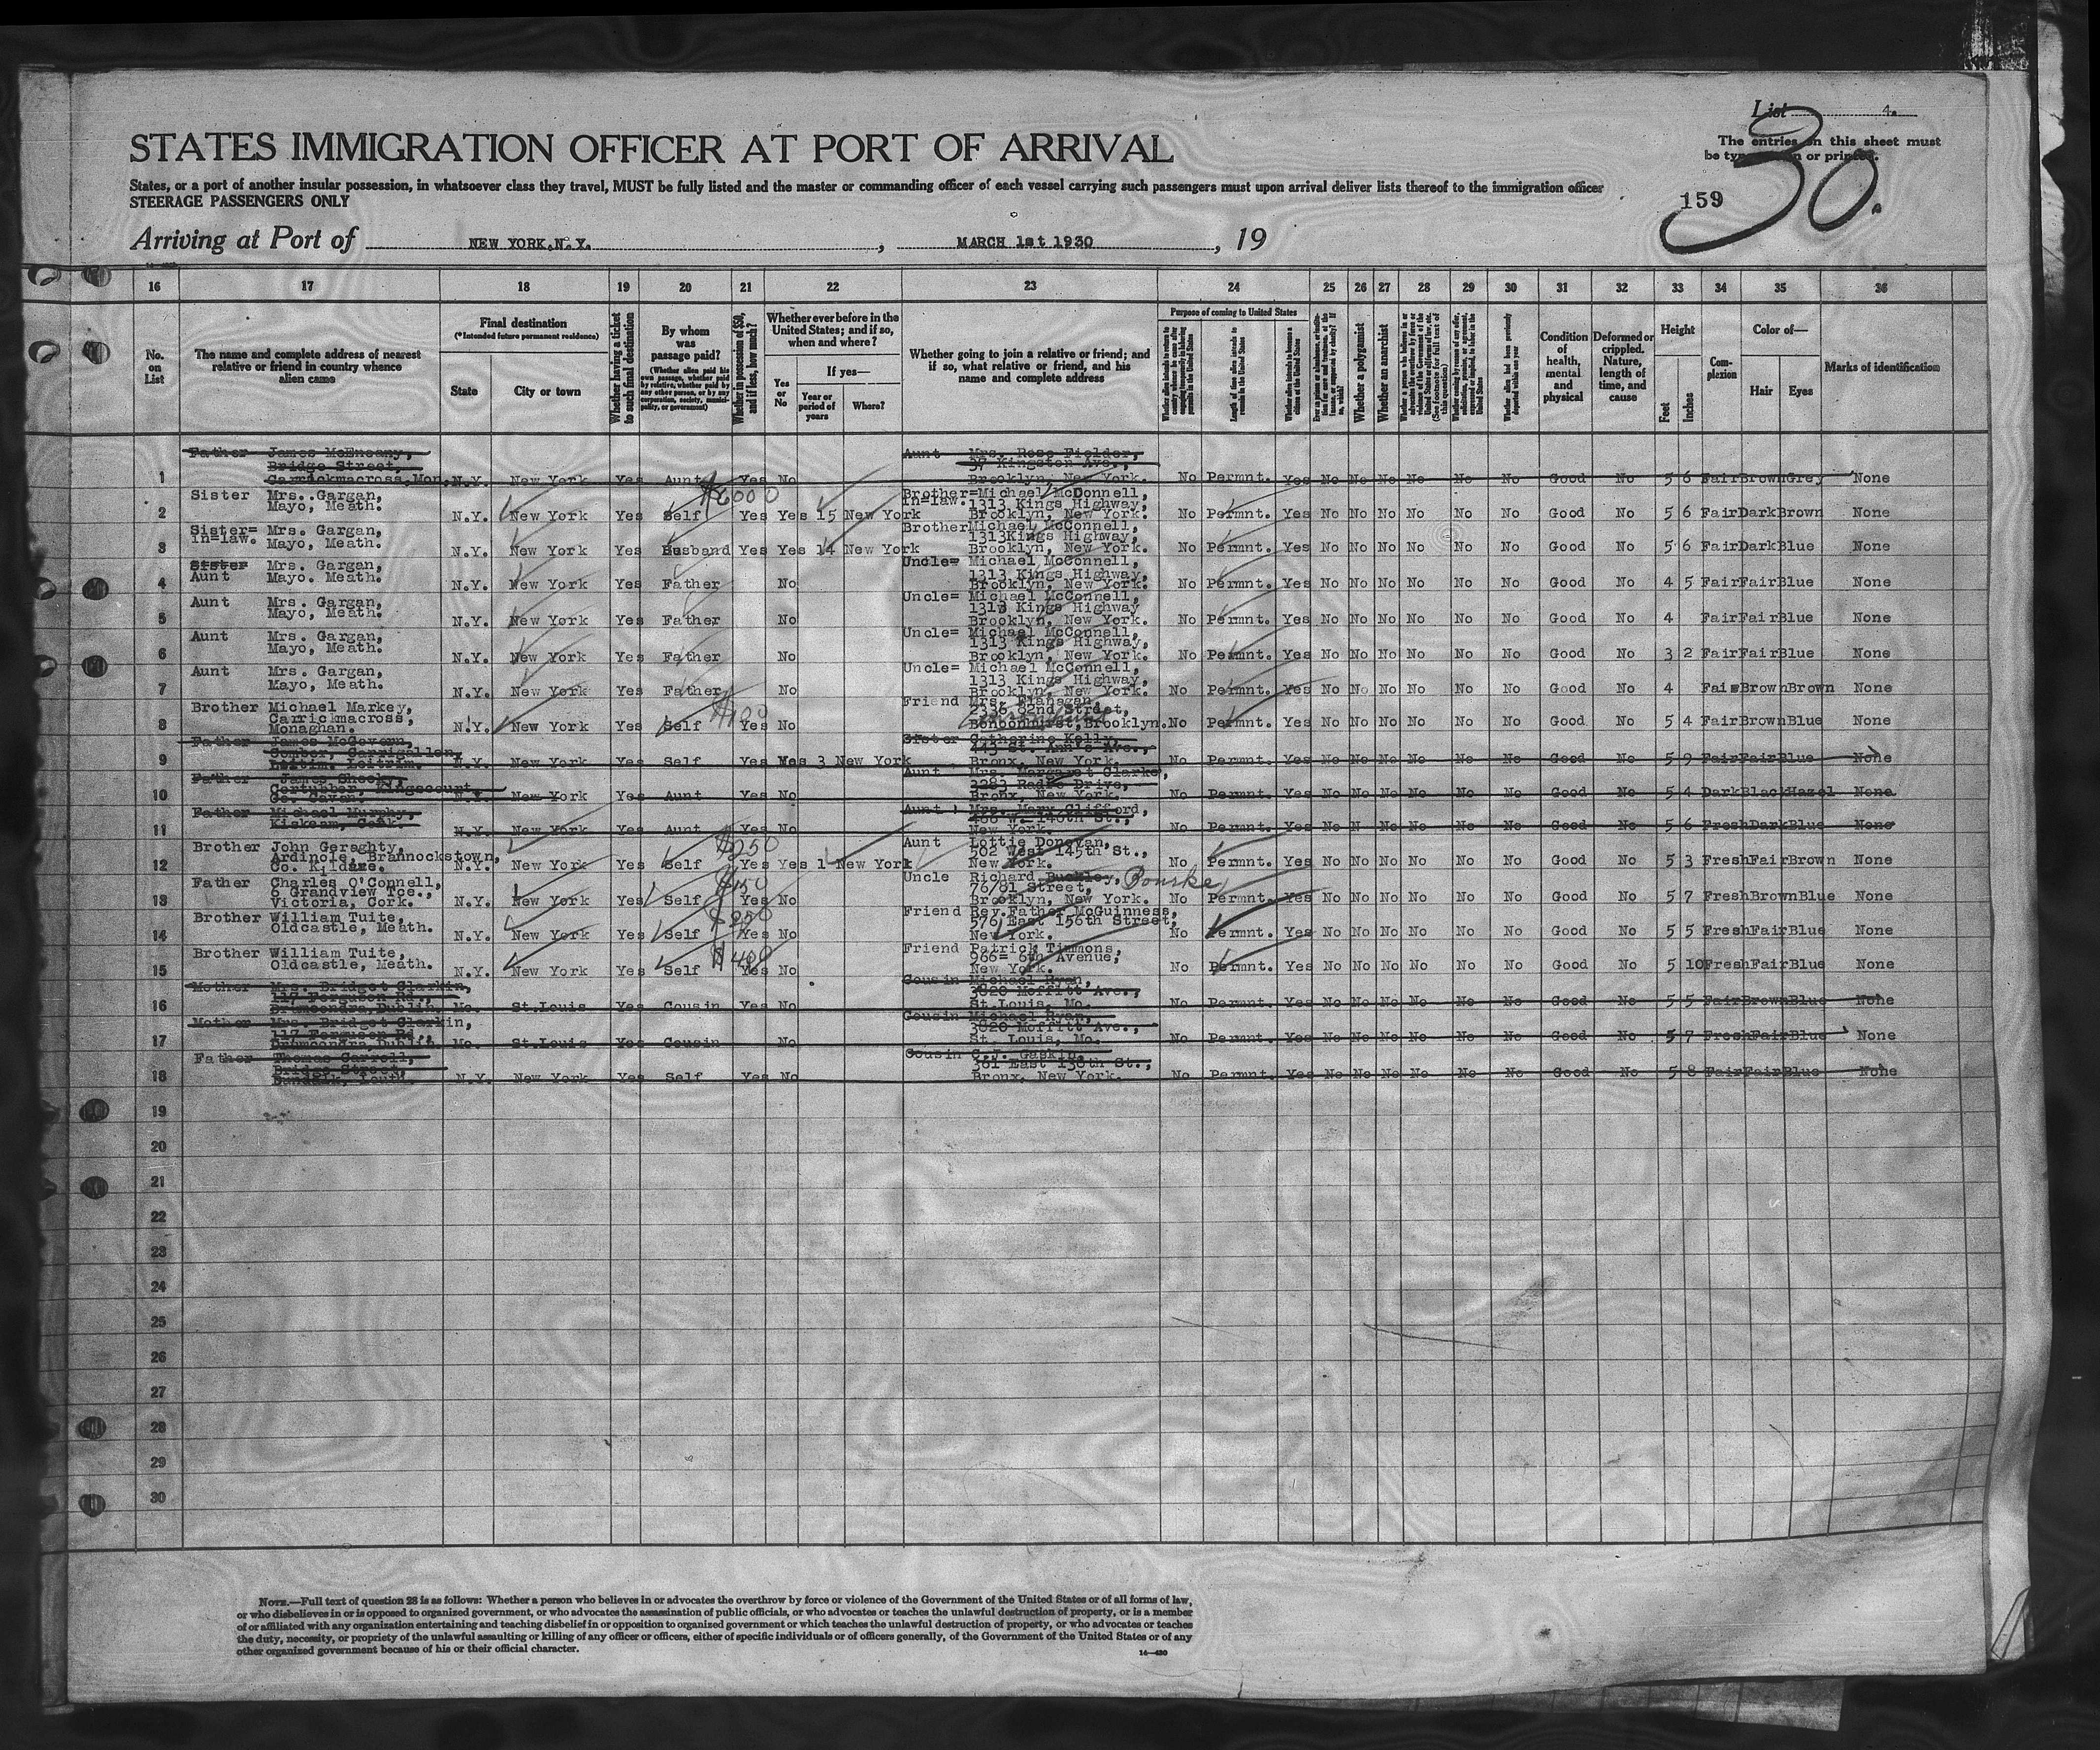 List 4.
STATES IMMIGRATION OFFICER AT PORT OF ARRIVAL
The entries on this sheet must
be typewritten or printed.
States, or a port of another insular possession, in whatsoever class they travel, MUST be fully listed and the master or commanding officer of each vessel carrying such passengers must upon arrival deliver lists thereof to the immigration officer
STEERAGE PASSENGERS ONLY
159
30.
Arriving at Port of NEW YORK,N.Y. , MARCH 1st 1930 , 19
16 17 18 19 20 21 22 23 24 25 26 27 28 29 30 31 32 33 34 35 36
No. on List
The name and complete address of nearest relative or friend in country whence alien came
Final destination
(*Intended future permanent residence)
State
City or town
Whether having a ticket to such final destination
By whom was passage paid?
(Whether alien paid his own passage, whether paid by relative, whether paid by any other person, or by any corporation, society, municipality, or government)
Whether in possession of $50, and if less, how much?
Whether ever before in the United States; and if so, when and where?
Yes or No
If yes—
Year or period of years
Where?
Whether going to join a relative or friend; and if so, what relative or friend, and his name and complete address
Purpose of coming to United States
Whether a polygamist
Whether an anarchist
Condition of health, mental and physical
Deformed or crippled. Nature, length of time, and cause
Height
Feet
Inches
Complexion
Color of—
Hair
Eyes
Marks of identification
1 Father James McEneany, Bridge Street, Carrickmacross, Mon. N.Y. New York Yes Aunt Yes No Aunt Mrs. Rose Fielder, 37 Kingston Ave., Brooklyn, New York. No Permnt. Yes No No No No No No Good No 5 6 Fair Brown Grey None
2 Sister Mrs. Gargan, Mayo, Meath. N.Y. New York Yes Self $6000 Yes Yes 15 New York Brother=in=law. Michael McConnell, 1313 Kings Highway, Brooklyn, New York. No Permnt. Yes No No No No No No Good No 5 6 Fair Dark Brown None
3 Sister=in=law. Mrs. Gargan, Mayo, Meath. N.Y. New York Yes Husband Yes Yes 14 New York Brother Michael McConnell, 1313Kings Highway, Brooklyn, New York. No Permnt. Yes No No No No No No Good No 5 6 Fair Dark Blue None
4 Sister Aunt Mrs. Gargan, Mayo. Meath. N.Y. New York Yes Father No Uncle= Michael McConnell, 1313 Kings Highway, Brooklyn, New York. No Permnt. Yes No No No No No No Good No 4 5 Fair Fair Blue None
5 Aunt Mrs. Gargan, Mayo, Meath. N.Y. New York Yes Father No Uncle= Michael McConnell, 1313 Kings Highway Brooklyn, New York. No Permnt. Yes No No No No No No Good No 4 Fair Fair Blue None
6 Aunt Mrs. Gargan, Mayo, Meath. N.Y. New York Yes Father No Uncle= Michael McConnell, 1313 Kings Highway, Brooklyn, New York. No Permnt. Yes No No No No No No Good No 3 2 Fair Fair Blue None
7 Aunt Mrs. Gargan, Mayo, Meath. N.Y. New York Yes Father No Uncle= Michael McConnell, 1313 Kings Highway, Brooklyn, New York. No Permnt. Yes No No No No No No Good No 4 Fair Brown Brown None
8 Brother Michael Markey, Carrickmacross, Monaghan. N.Y. New York Yes Self $100 Yes No Friend Mrs. Flanagan, 2336 82nd Street, Bensonhurst, Brooklyn. No Permnt. Yes No No No No No No Good No 5 4 Fair Brown Blue None
9 Father James McGovern, Carrigallen, Leitrim. N.Y. New York Yes Self Yes Yes 3 New York Sister Catherine Kelly, 443 St. Ann's Ave., Bronx, New York. No Permnt. Yes No No No No No No Good No 5 9 Fair Fair Blue None
10 Father James Sheeky, Cortubber, Kingscourt, Co. Cavan. N.Y. New York Yes Aunt Yes No Aunt Mrs. Margaret Clarke, 3283 Drive, Bronx, New York. No Permnt. Yes No No No No No No Good No 5 4 Dark Black Hazel None
11 Father Michael Murphy, Kiskeam, Cork. N.Y. New York Yes Aunt Yes No Aunt Mrs. Mary Clifford, 466 W. 146th St., New York. No Permnt. Yes No N No No No No Good No 5 6 Fresh Dark Blue None
12 Brother John Geraghty, Ardincle, Brannockstown, Co. Kildare. N.Y. New York Yes Self $250 Yes Yes 1 New York Aunt Lottie Donovan, 502 West 145th St., New York. No Permnt. Yes No No No No No No Good No 5 3 Fresh Fair Brown None
13 Father Charles O'Connell, 6 Grandview Tce., Victoria, Cork. N.Y. New York Yes Self $150 Yes No Uncle Richard Buckley, Bourke 76/81 Street, Brooklyn, New York. No Permnt. Yes No No No No No No Good No 5 7 Fresh Brown Blue None
14 Brother William Tuite, Oldcastle, Meath. N.Y. New York Yes Self $250 Yes No Friend Rev.Father McGuinness, 576, East 156th Street, New York. No Permnt. Yes No No No No No No Good No 5 5 Fresh Fair Blue None
15 Brother William Tuite, Oldcastle, Meath. N.Y. New York Yes Self $400 Yes No Friend Patrick Timmons, 966= 6th Avenue, New York. No Permnt. Yes No No No No No No Good No 5 10 Fresh Fair Blue None
16 Mother Mrs. Bridget Clarkin, 117 Ferguson Rd., Drumcondra, Dublin. Mo. St.Louis Yes Cousin Yes No Cousin Michael Ryan, 3820 Moffitt Ave., St.Louis, Mo. No Permnt. Yes No No No No No No Good No 5 5 Fair Brown Blue None
17 Mother Mrs. Bridget Clarkin, 117 Ferguson Rd., Drumcondra, Dublin. Mo. St.Louis Yes Cousin No Cousin Michael Ryan, 3820 Moffitt Ave., St. Louis, Mo. No Permnt. Yes No No No No No No Good No 5 7 Fresh Fair Blue None
18 Father Thomas Carroll, Bridge Street, Dundalk, Louth. N.Y. New York Yes Self Yes No Cousin C.J. Gaskin, 361 East 138th St., Bronx, New York. No Permnt. Yes No No No No No No Good No 5 8 Fair Fair Blue None
19
20
21
22
23
24
25
26
27
28
29
30
NOTE.—Full text of question 28 is as follows: Whether a person who believes in or advocates the overthrow by force or violence of the Government of the United States or of all forms of law,
or who disbelieves in or is opposed to organized government, or who advocates the assassination of public officials, or who advocates or teaches the unlawful destruction of property, or is a member
of or affiliated with any organization entertaining and teaching disbelief in or opposition to organized government or which teaches the unlawful destruction of property, or who advocates or teaches
the duty, necessity, or propriety of the unlawful assaulting or killing of any officer or officers, either of specific individuals or of officers generally, of the Government of the United States or of any
other organized government because of his or their official character.
14—430